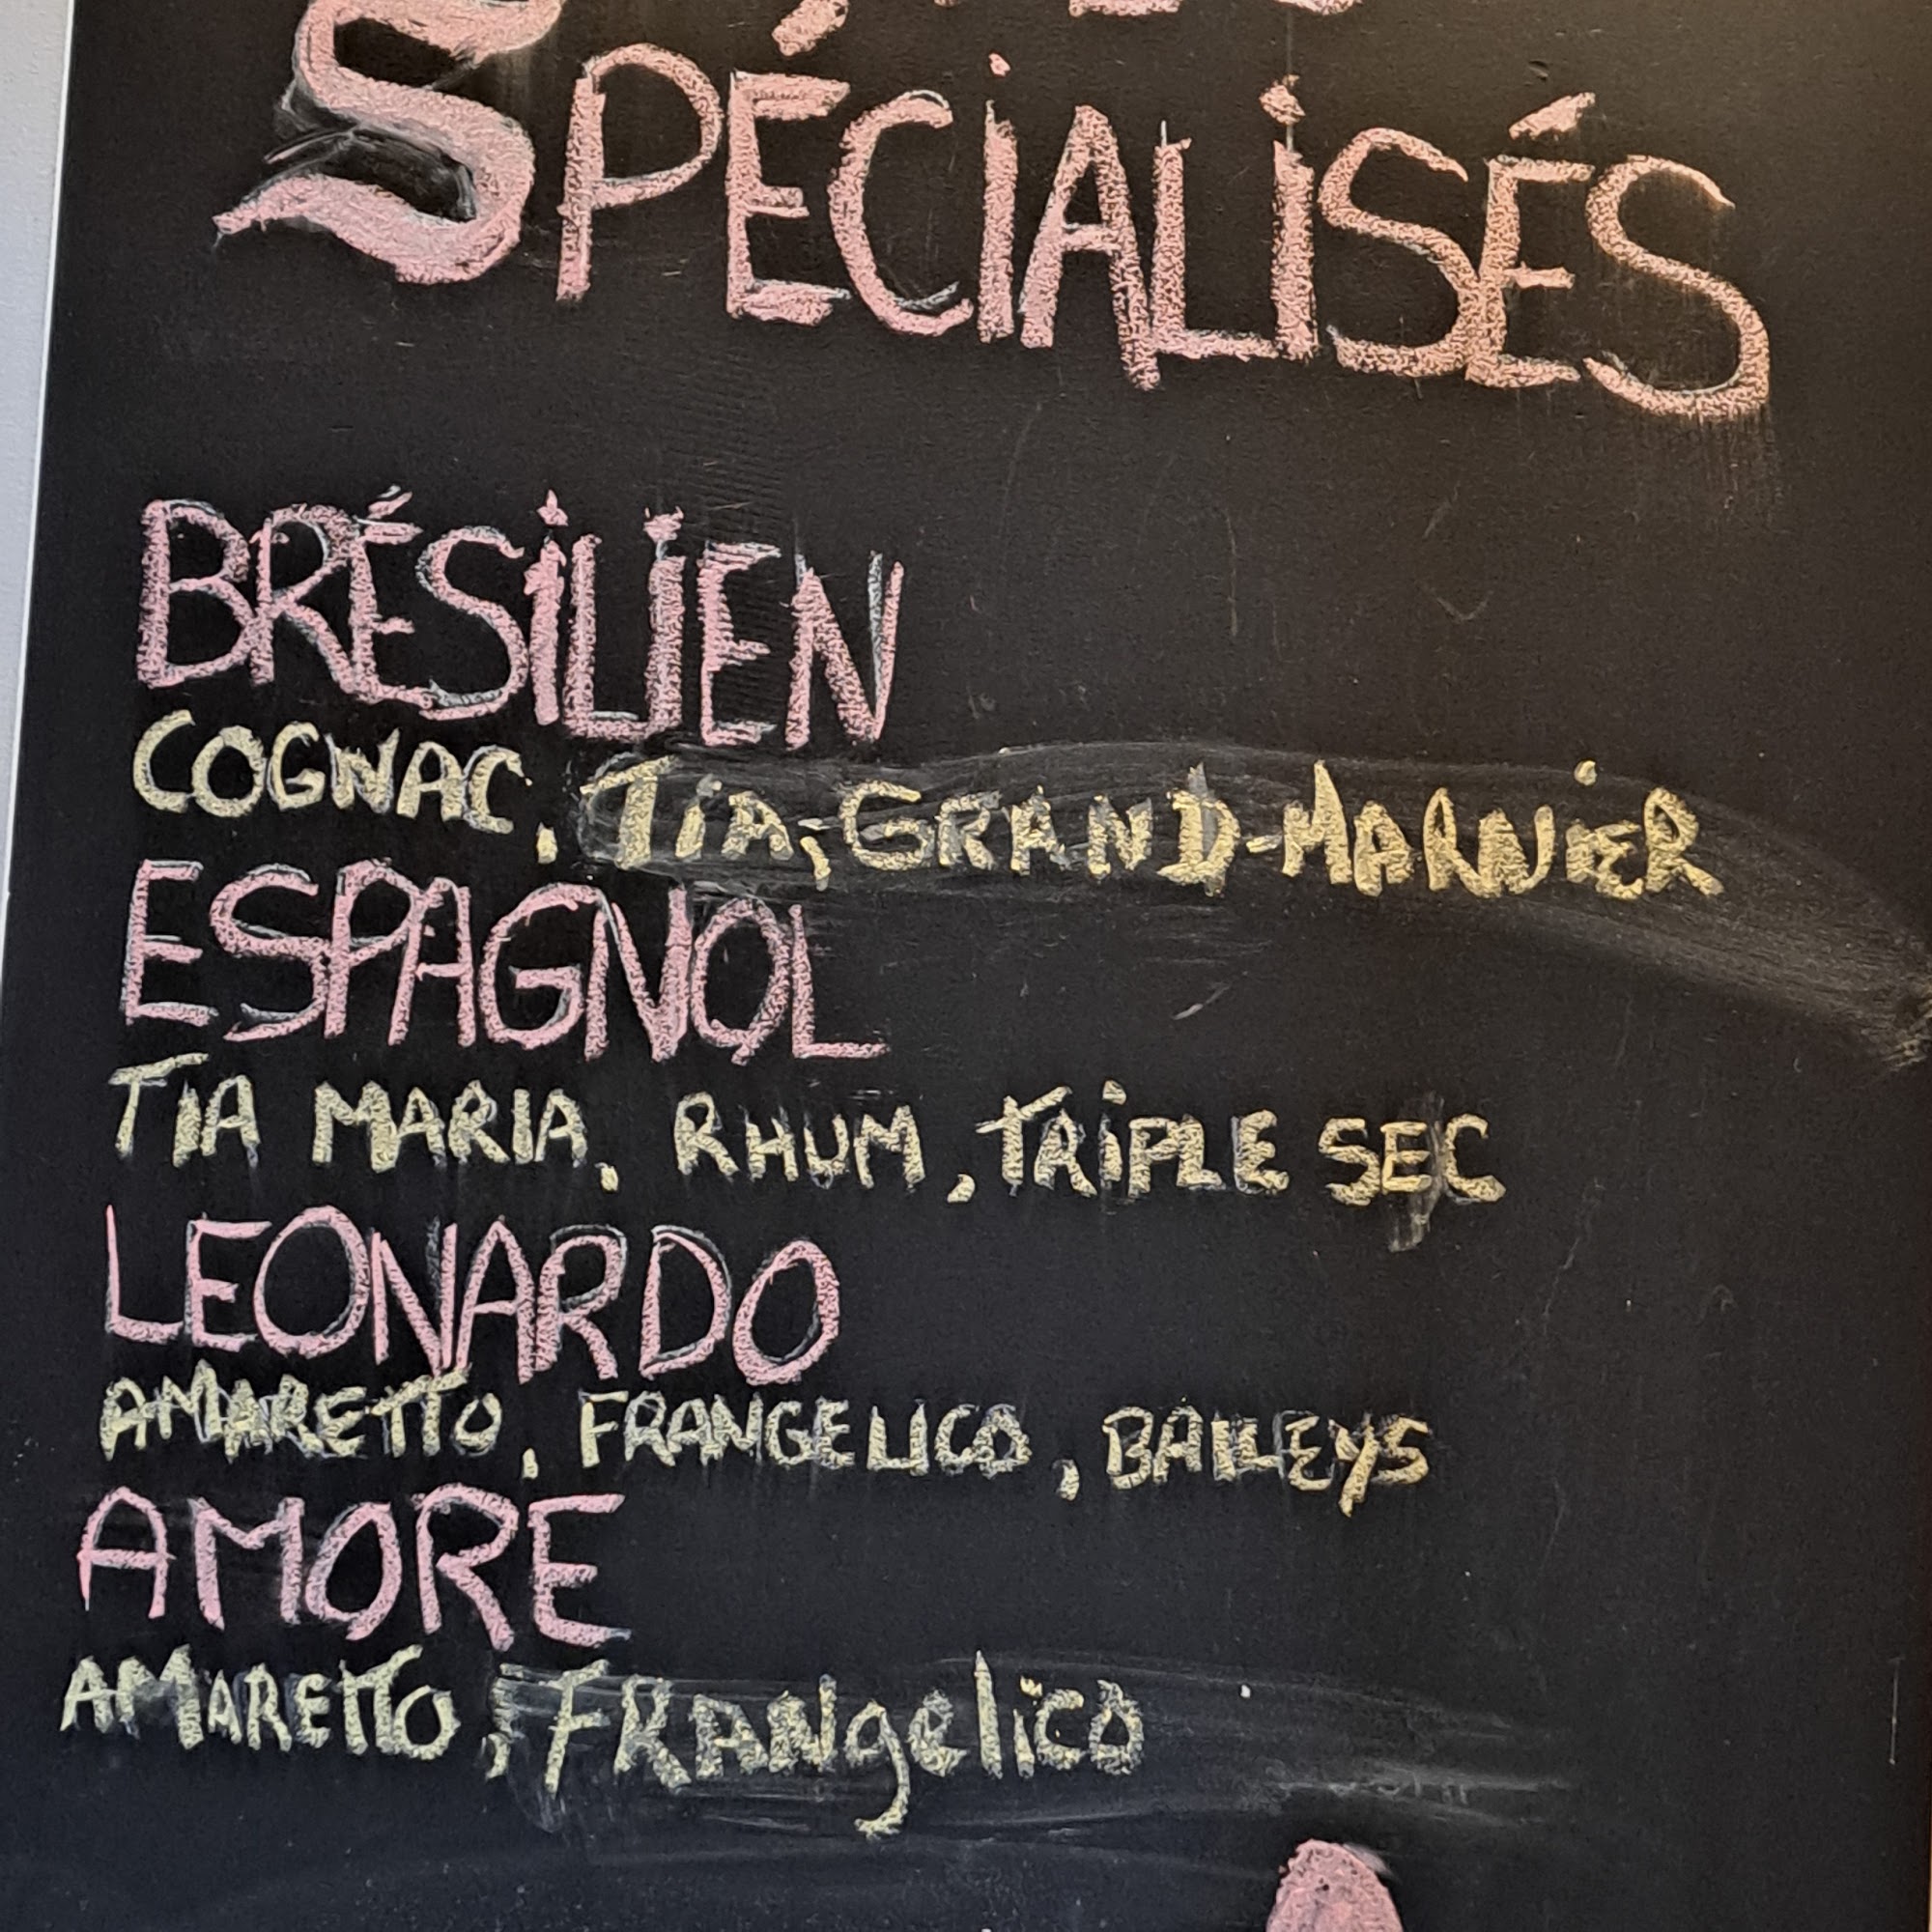 SPÉCIALISÉS
BRÉSILIEN
COGNAC, TIA, GRAND-MARNIER
ESPAGNOL
TIA MARIA, RHUM, TRIPLE SEC
LEONARDO
AMARETTO, FRANGELICO, BAILEYS
AMORE
AMARETTO, FRANgelico